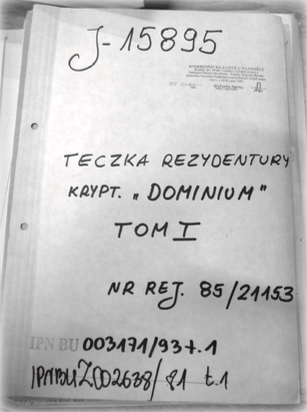 J-15895
TECZKA REZYDENTURY
KRYPT. „DOMINIUM"
TOM I
NR REJ. 85/21153
IPN BU 003171/93 t.1
IPN BU Z 002638/81 t.1